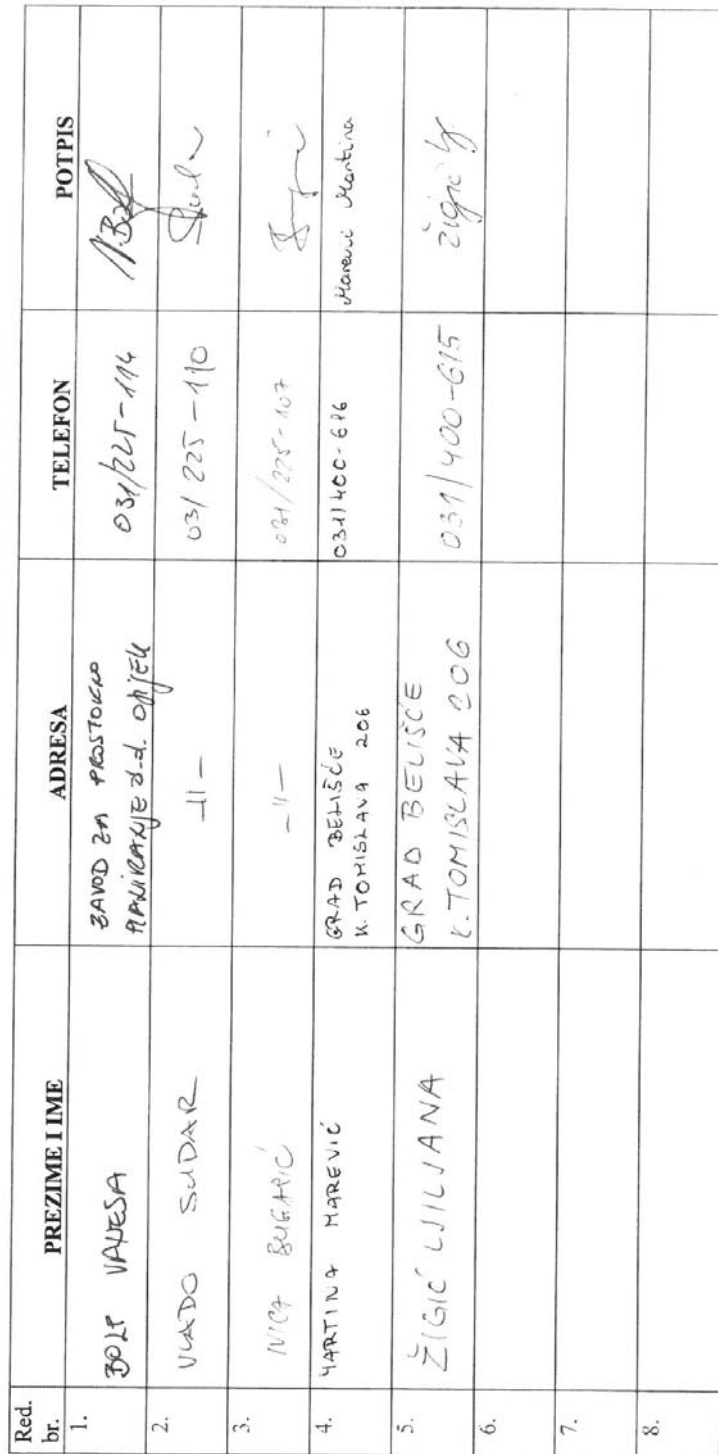 Red. br. PREZIME I IME ADRESA TELEFON POTPIS
1. BOLT VANESA ZAVOD ZA PROSTORNO
PLANIRANJE d.d. OSIJEK 031/225-114
2. VLADO SUDAR -||- 031 225-110
3. IVICA BUGARIĆ -||- 031/225-107
4. MARTINA MAREVIĆ GRAD BELIŠĆE
K. TOMISLAVA 206 031/400-616 Marević Martina
5. ŽIGIĆ LJILJANA GRAD BELIŠĆE
K. TOMISLAVA 206 031/400-615 Žigić Lj
6.
7.
8.